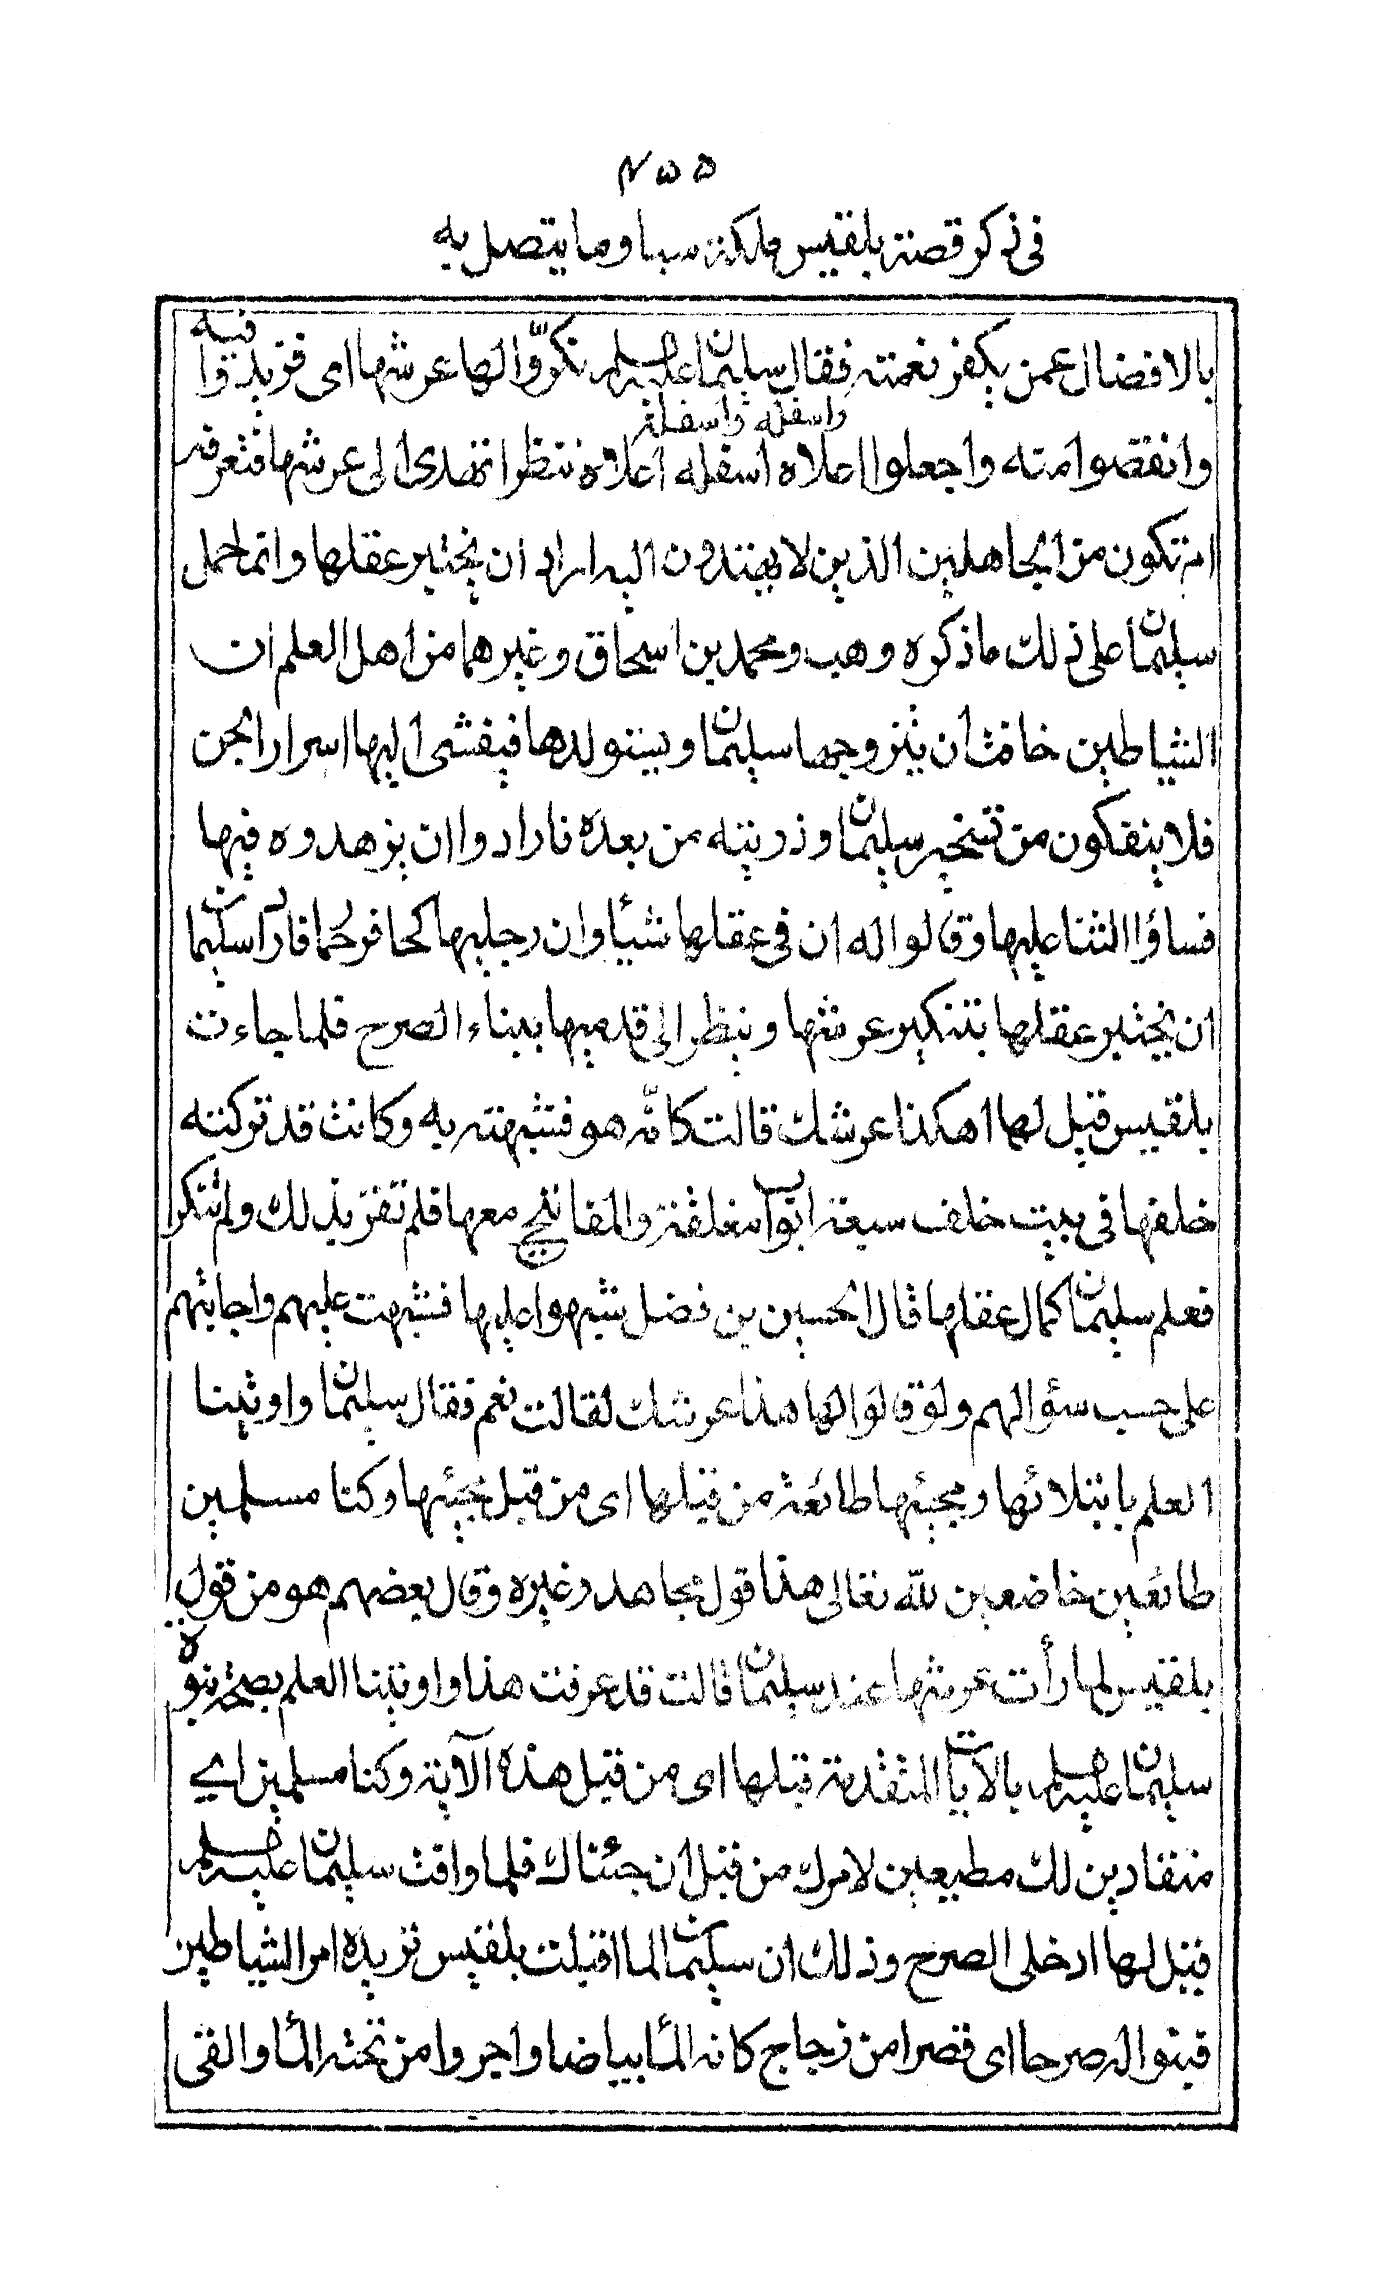 ٢٥٥
في ذكر قصة بلقيس ملكة سبا وما يتصل به
بالافضال عمن يكفر نعمته فقال سليمان عليه السلام نكروا لها عرشها اى فزيدوا فيه
وانقصوا منه واجعلوا اعلاه اسفله واسفله اعلاه ننظر اتهتدى الى عرشها فتعرفه
ام تكون من الجاهلين الذين لا يهتدون اليه اراد ان يختبر عقلها وانما حمل
سليمان على ذلك ما ذكره وهب ومحمد بن اسحاق وغيرهما من اهل العلم ان
الشياطين خافت ان يتزوجها سليمان ويستولدها فيفشى اليها اسرار الجن
فلا ينفكون من تسخير سليمان وذريته من بعده فارادوا ان يزهدوه فيها
فساؤا الثنا عليها وقالوا له ان في عقلها شيئا وان رجليها كحافر حمار فاراد سليمان
ان يختبر عقلها بتنكير عرشها وينظر الى قدميها ببناء الصرح فلما جاءت
بلقيس قيل لها اهكذا عرشك قالت كانّه هو فشبهته به وكانت قد تركته
خلفها في بيت خلف سبعة ابواب مغلقة والمفاتيح معها فلم تقر بذلك ولم تنكر
فعلم سليمان كمال عقلها قال الحسين بن فضل شبهوا عليها فشبهت عليهم واجابتهم
على حسب سؤالهم ولو قالوا لها هذا عرشك لقالت نعم فقال سليمان واوتينا
العلم بابتلائها ومجيئها طائعة من قبلها اى من قبل مجيئها وكنا مسلمين
طائعين خاضعين لله تعالى هذا قول مجاهد وغيره وقال بعضهم هو من قول
بلقيس لما رأت عرشها عند سليمان قالت قد عرفت هذا واوتينا العلم بصحة نبوة
سليمان عليه السلام بالآيات المتقدمة قبلها اى من قبل هذه الآية وكنا مسلمين اي
منقادين لك مطيعين لامرك من قبل ان جئناك فلما وافت سليمان عليه السلام
قيل لها ادخلى الصرح وذلك ان سليمان لما اقبلت بلقيس تريده امر الشياطين
فبنوا له صرحا اى قصرا من زجاج كانه الما بياضا واجروا من تحته الما والقى